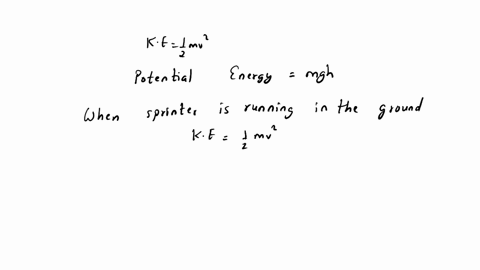 K.E = 1/2 mv²
Potential Energy = mgh
When sprinter is running in the ground
K.E = 1/2 mv²